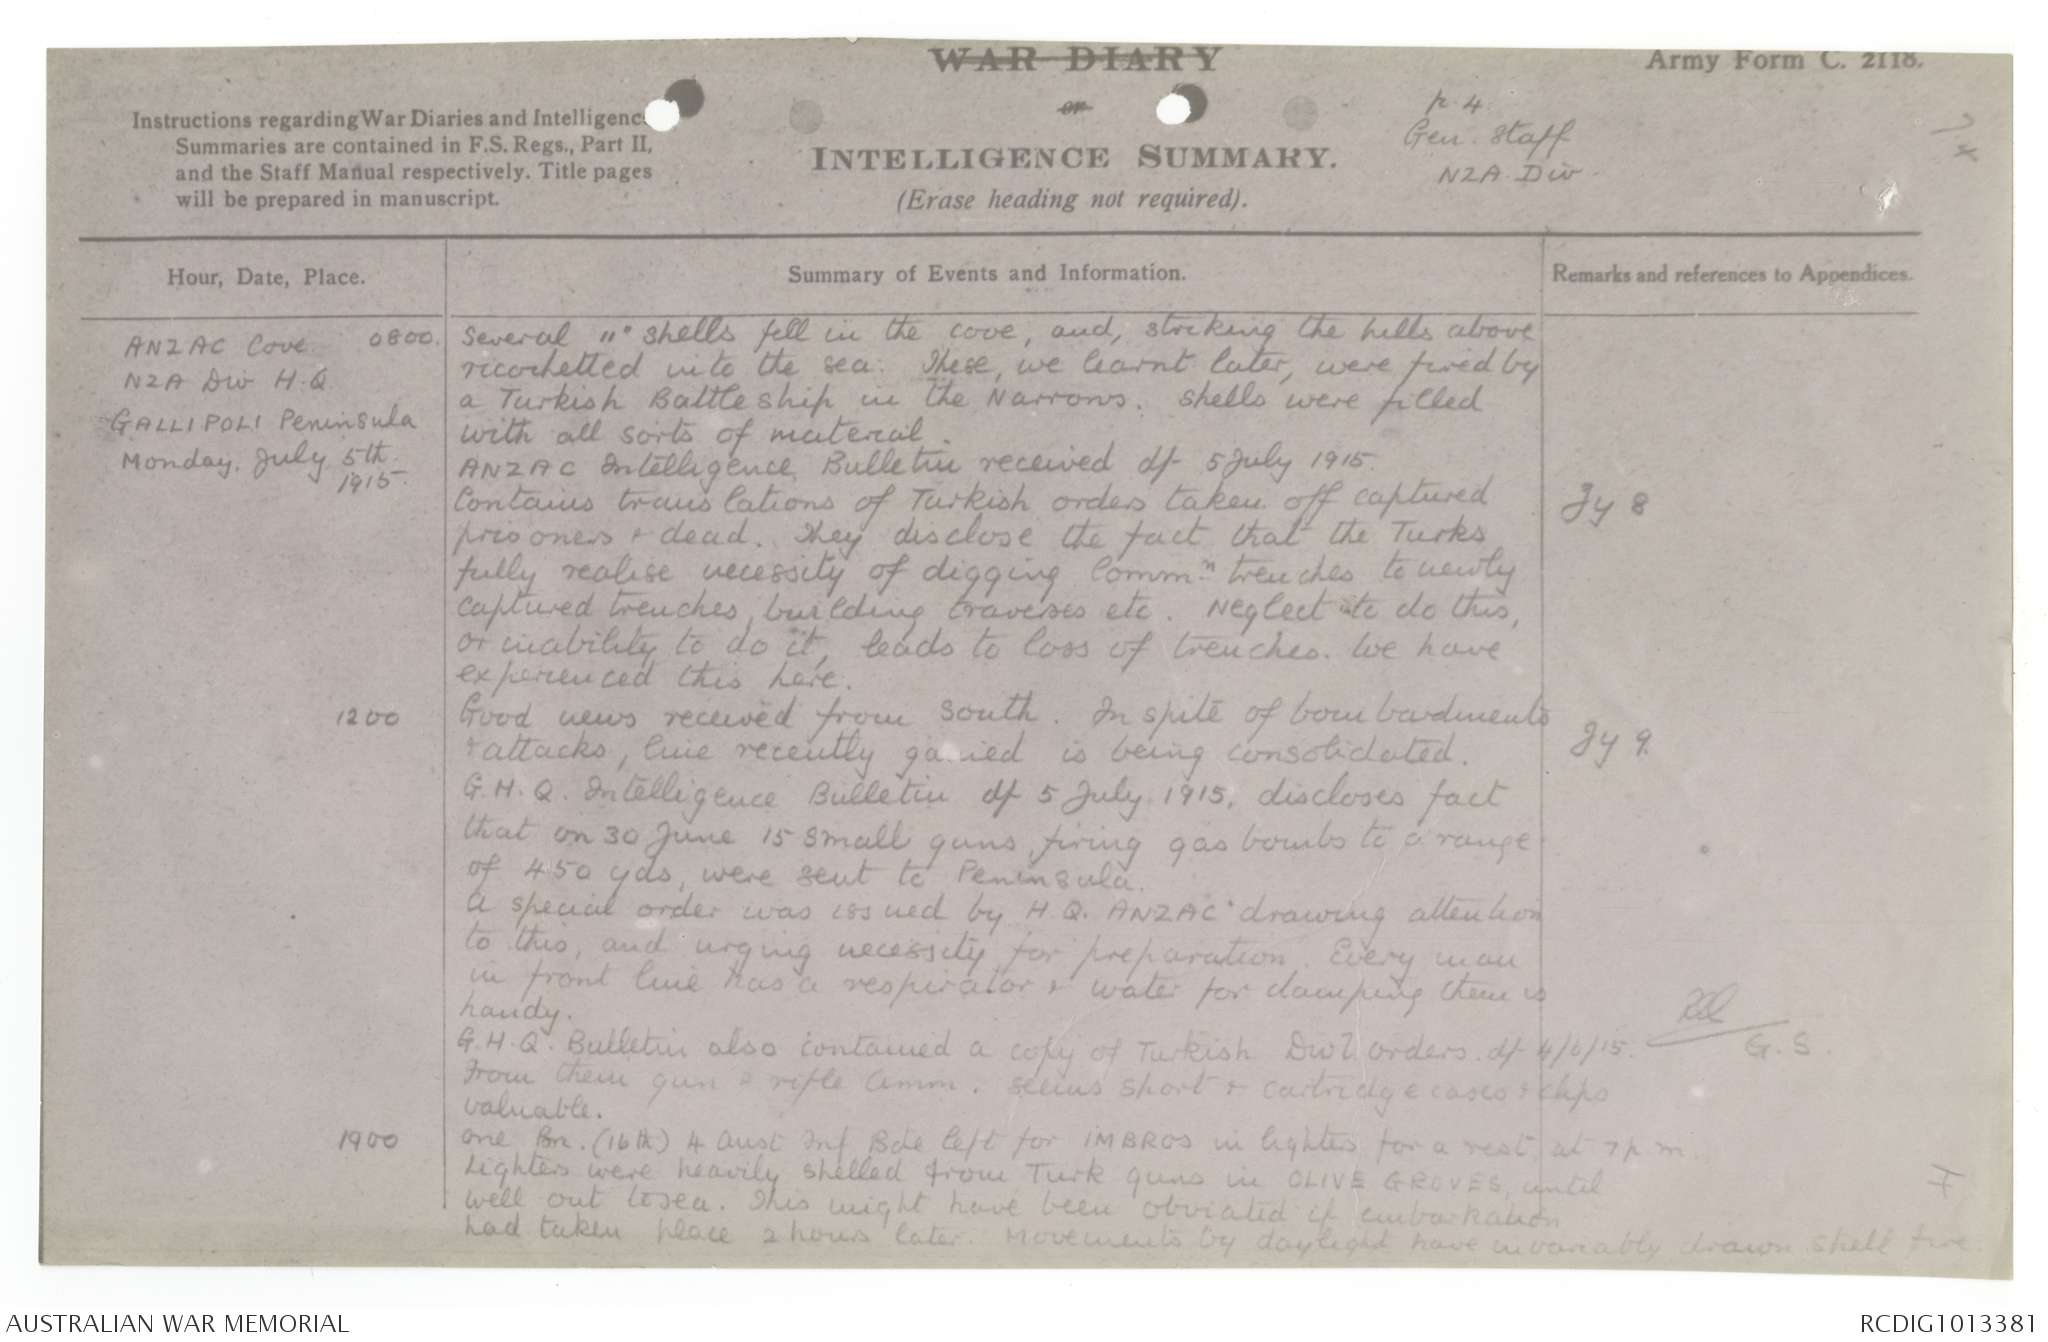 WAR DIARY
or
INTELLIGENCE SUMMARY.
(Erase heading not required).
Army Form C. 2118.
p. 4.
Gen. Staff
NZA Div.
Instructions regarding War Diaries and Intelligence
Summaries are contained in F.S. Regs., Part II,
and the Staff Manual respectively. Title pages
will be prepared in manuscript.
Hour, Date, Place.
Summary of Events and Information.
Remarks and references to Appendices.
ANZAC Cove 0800.
NZA Div H.Q.
GALLIPOLI Peninsula
Monday. July 5th.
1915.
Several 11" shells fell in the cove, and, striking the hills above
ricochetted into the sea. These, we learnt later, were fired by
a Turkish Battleship in the Narrows. Shells were filled
with all sorts of material.
ANZAC Intelligence Bulletin received df 5 July 1915.
Contains translations of Turkish orders taken off captured
prisoners + dead. They disclose the fact that the Turks
fully realise necessity of digging Commn trenches to newly
captured trenches, building traverses etc. Neglect to do this,
or inability to do it, leads to loss of trenches. We have
experienced this here.
Jy 8
1200
Good news received from South. In spite of bombardments
+ attacks, line recently gained is being consolidated.
Jy 9.
G.H.Q. Intelligence Bulletin df 5 July 1915, discloses fact
that on 30 June 15 small guns, firing gas bombs to a range
of 450 yds, were sent to Peninsula.
A special order was issued by H.Q. ANZAC drawing attention
to this, and urging necessity for preparation. Every man
in front line has a respirator + water for damping them is
handy.
G.H.Q. Bulletin also contained a copy of Turkish Divl orders df 4/6/15.
From them gun + rifle Amm. seems short + cartridge cases + clips
valuable.
G.S.
1900
One Bn. (16th) 4 Aust Inf Bde left for IMBROS in lighters for a rest, at 7 p.m.
Lighters were heavily shelled from Turk guns in OLIVE GROVES, until
well out to sea. This might have been obviated if embarkation
had taken place 2 hours later. Movements by daylight have invariably drawn shell fire.
AUSTRALIAN WAR MEMORIAL
RCDIG1013381